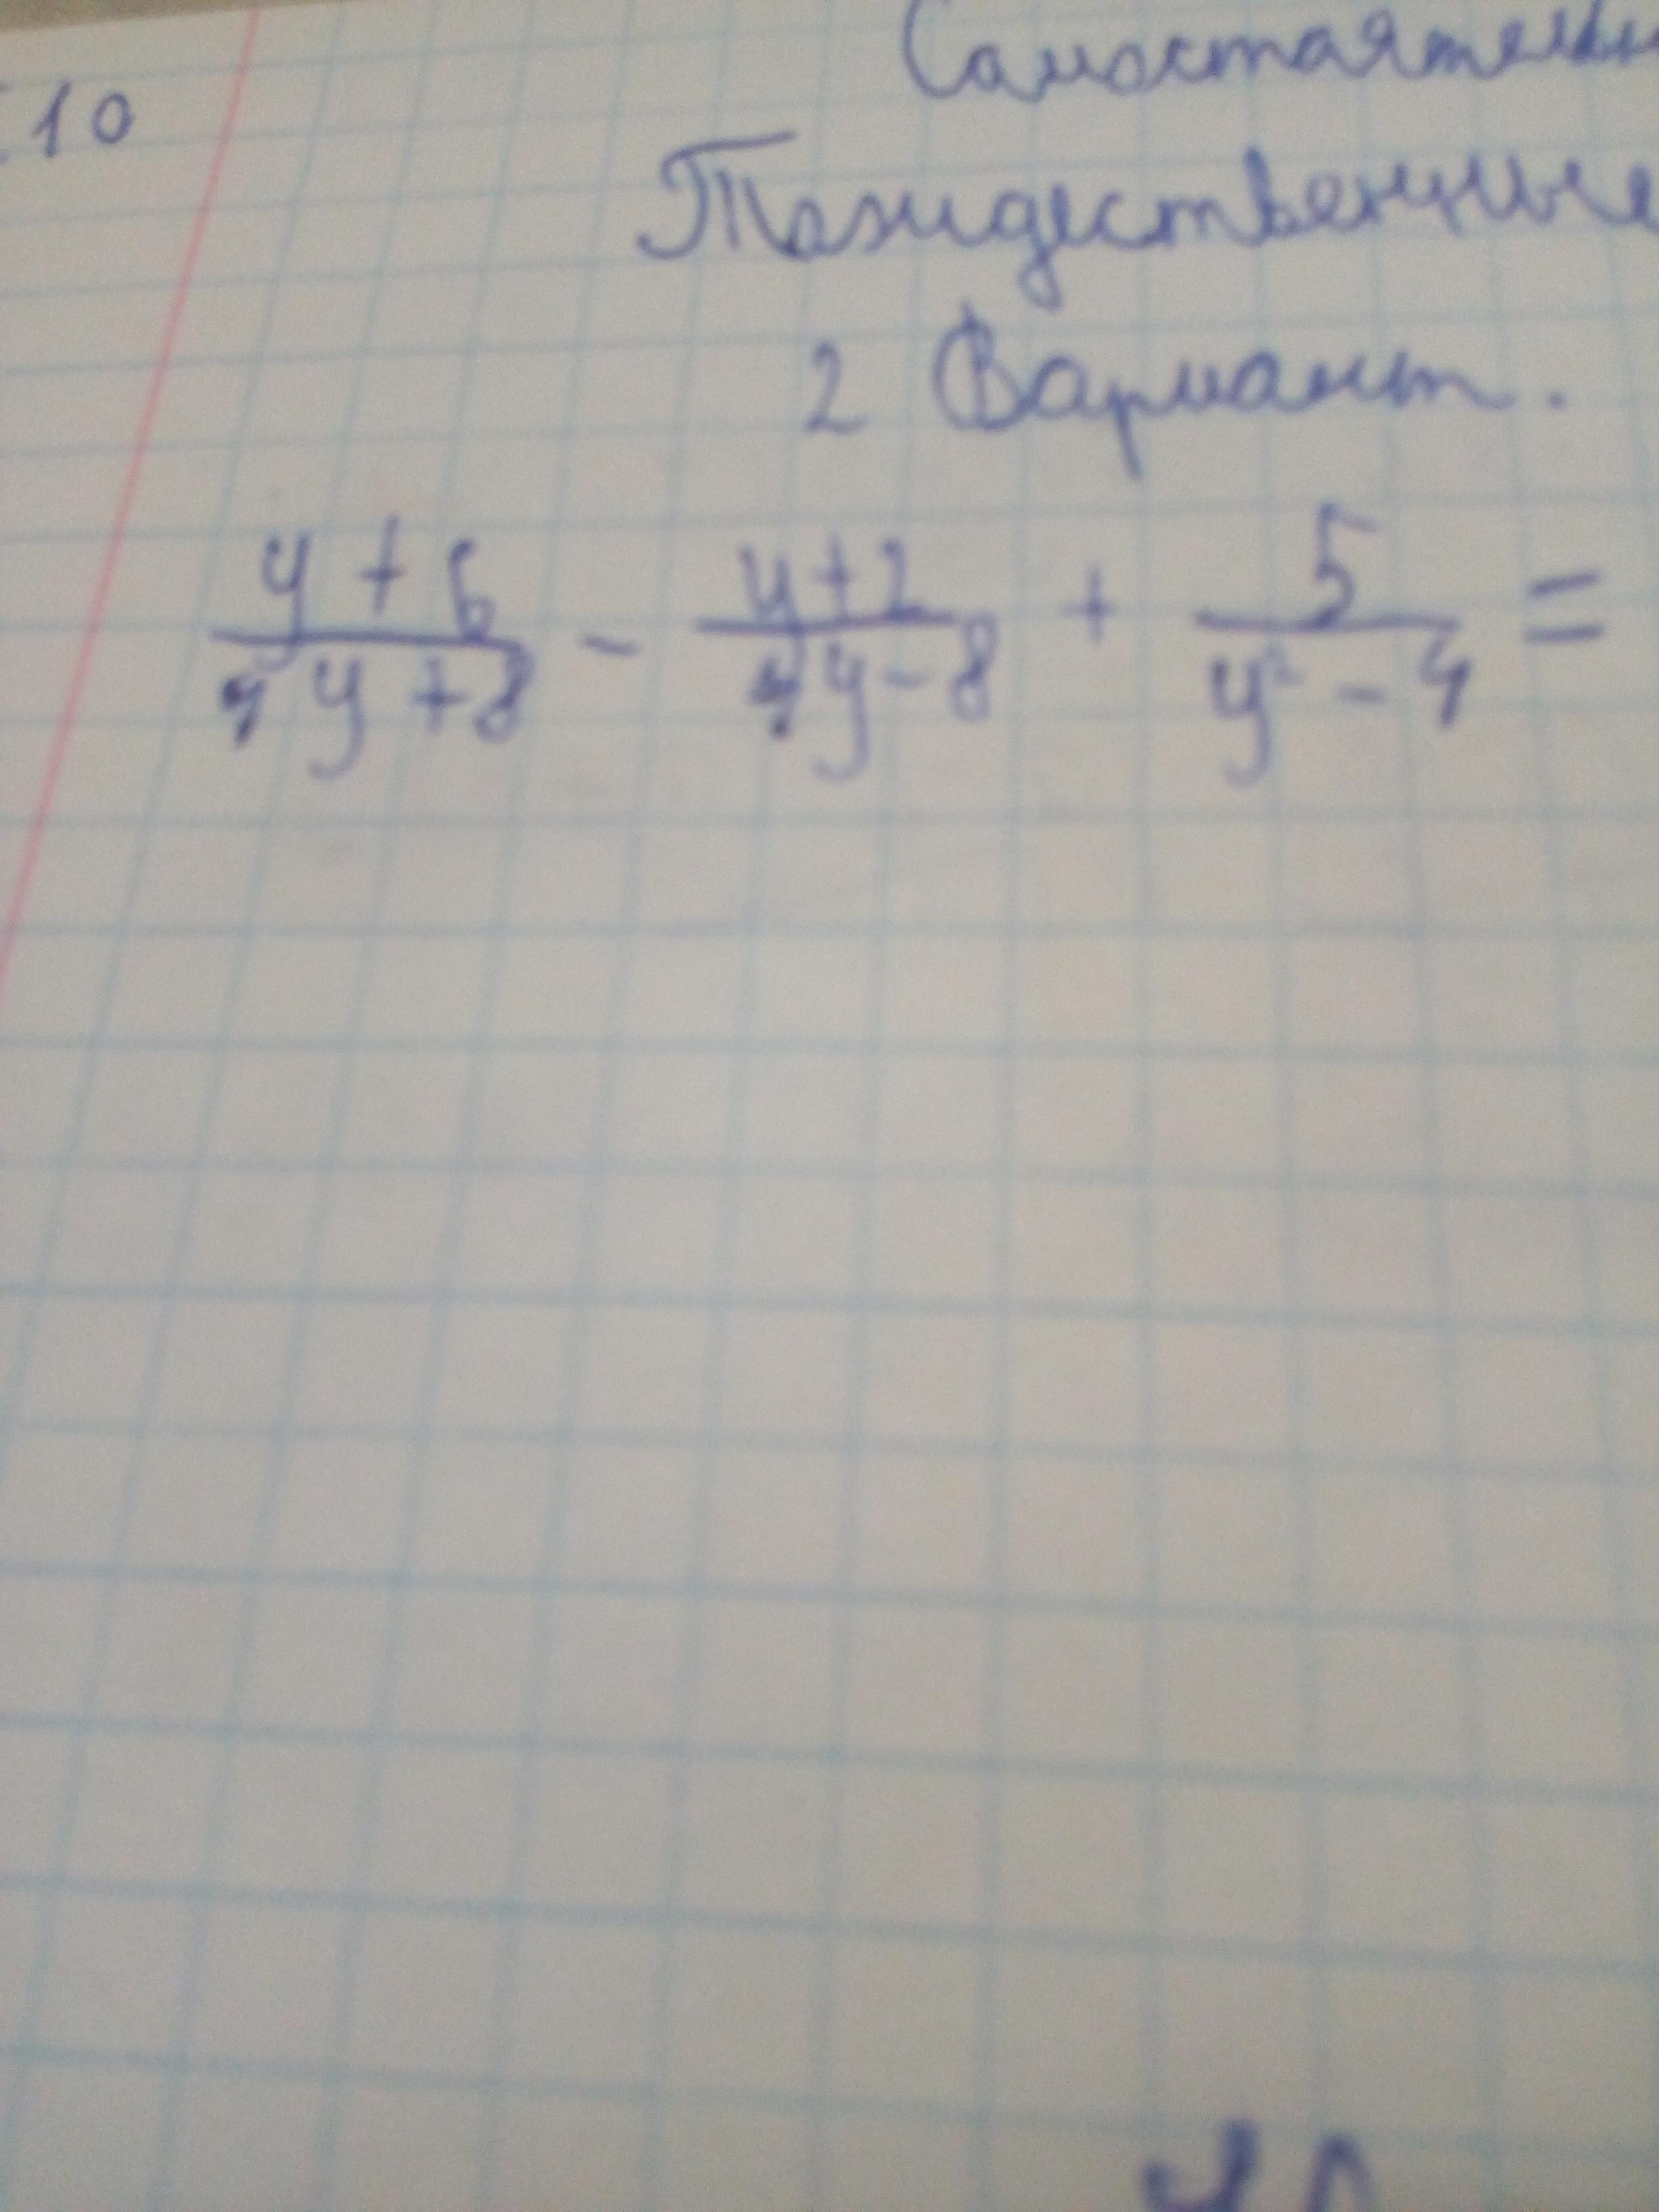 10
Самостоятельн
Тождественные
2 Вариант.
y+6/4y+8 - y+2/4y-8 + 5/y²-4 =